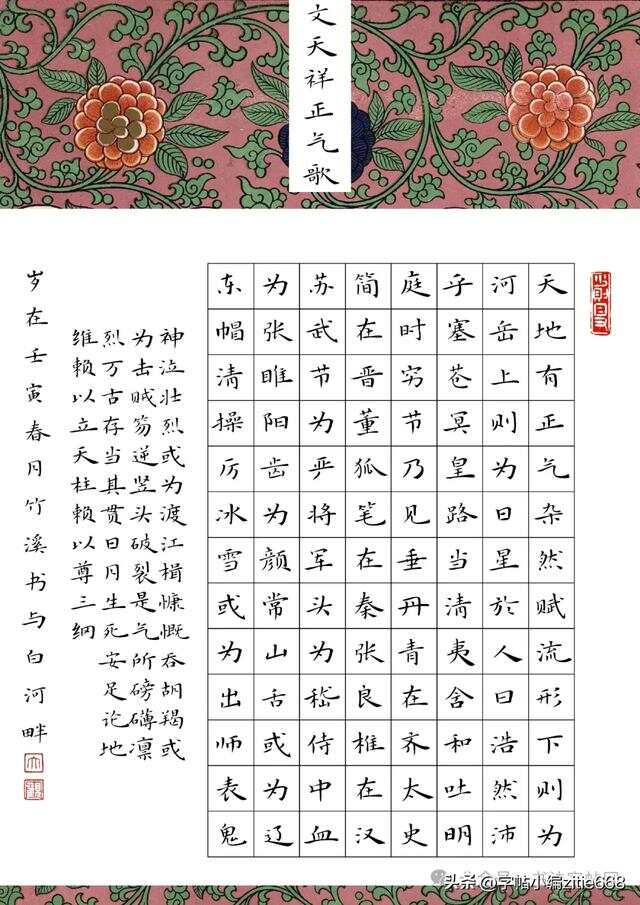 文天祥正气歌
天地有正气杂然赋流形下则为
河岳上则为日星於人曰浩然沛
乎塞苍冥皇路当清夷舍和吐明
庭时穷节乃见垂丹青在齐太史
简在晋董狐笔在秦张良椎在汉
苏武节为严将军头为嵇侍中血
为张睢阳齿为颜常山舌或为辽
东帽清操厉冰雪或为出师表鬼
神泣壮烈或为渡江楫慷慨吞胡羯或
为击贼笏逆竖头破裂是气所磅礴凛
烈万古存当其贯日月生死安足论地
维赖以立天柱赖以尊三纲
岁在壬寅春月竹溪书与白河畔
头条@字帖小编zitie668